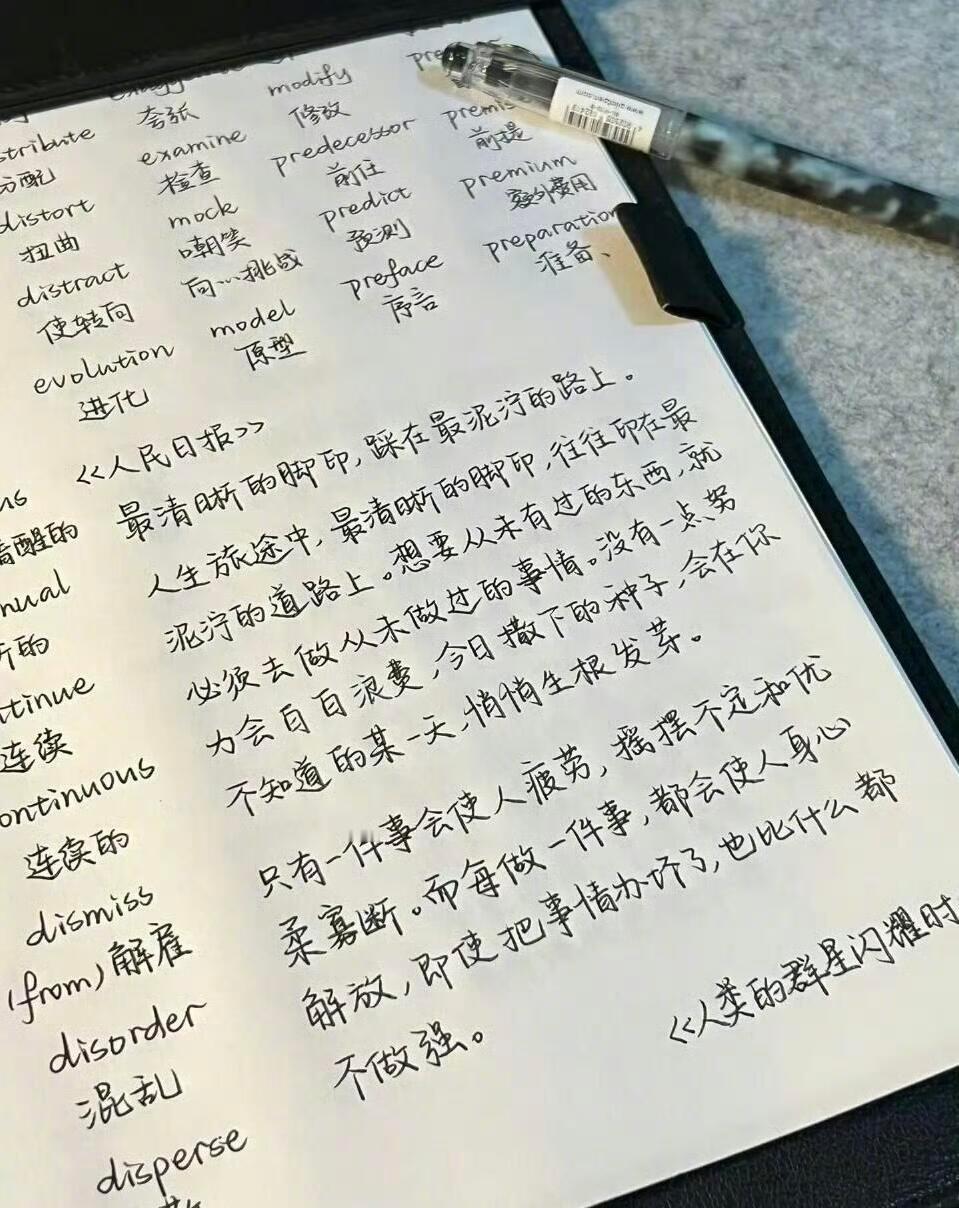 modify
夸张
修改
examine
predecessor
检查
前任
前提
分配
mock
predict
premium
distort
嘲笑
预测
额外费用
扭曲
向…挑战
preface
preparation
distract
model
序言
准备、
使转向
原型
evolution
进化
<<人民日报>>
最清晰的脚印，踩在最泥泞的路上。
人生旅途中，最清晰的脚印，往往印在最
泥泞的道路上。想要从未有过的东西，就
必须去做从未做过的事情。没有一点努
力会白白浪费，今日撒下的种子，会在你
不知道的某一天，悄悄生根发芽。
只有一件事会使人疲劳，摇摆不定和优
柔寡断。而每做一件事，都会使人身心
解放，即使把事情办坏了，也比什么都
不做强。
<<人类的群星闪耀时
连续
continuous
连续的
dismiss
(from)解雇
disorder
混乱
disperse